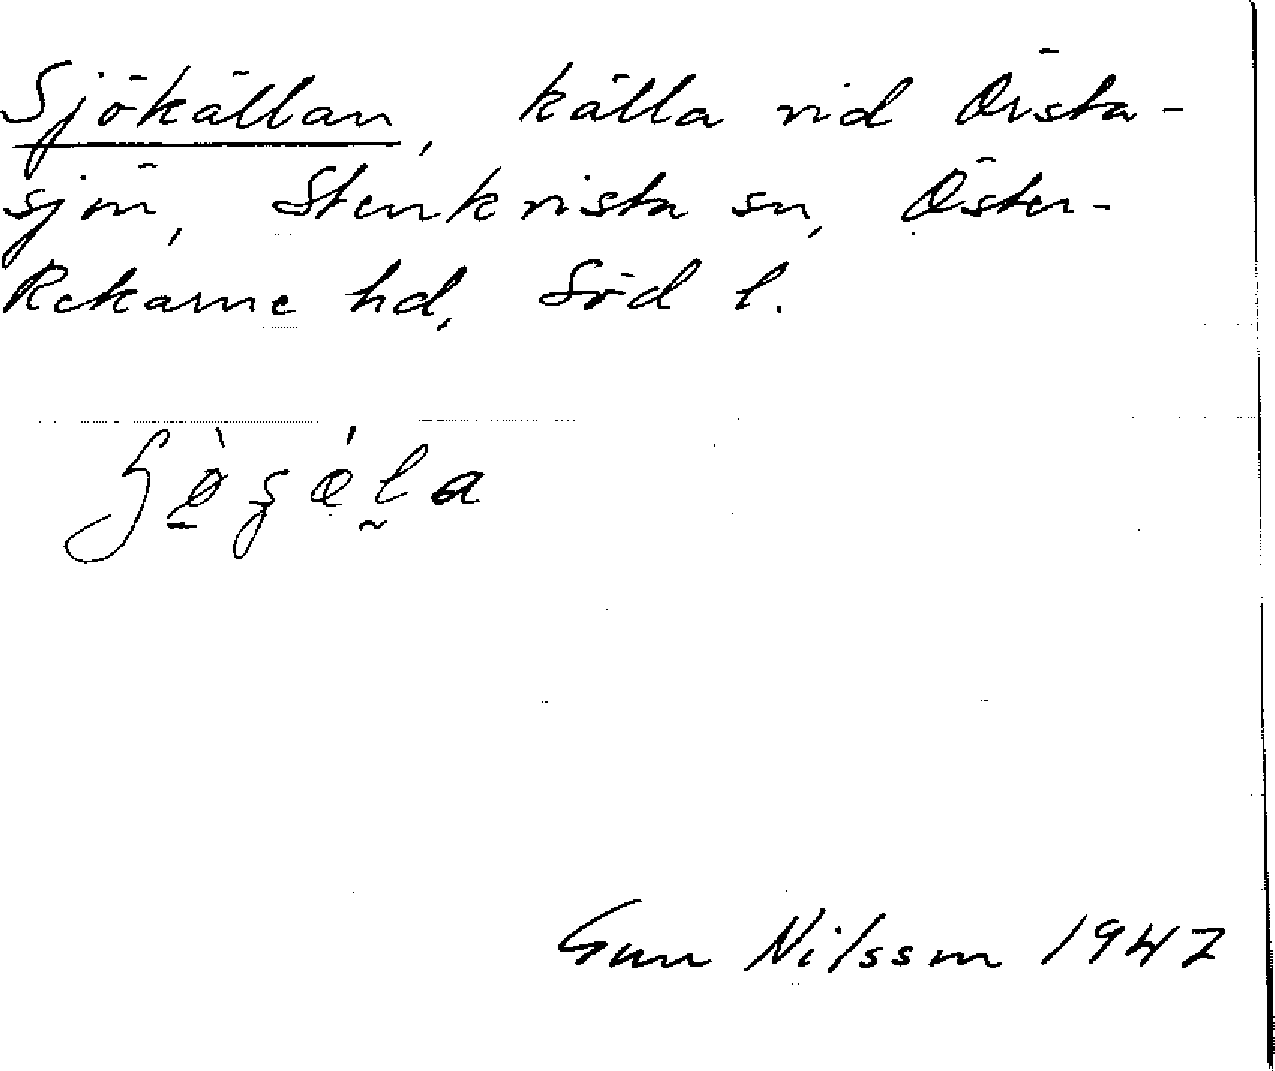 Sjökällan, källa vid Örsta-
sjön, Stenkvista sn, Öster-
Rekarne hd, Söd l.
Gun Nilsson 1947